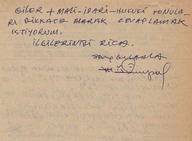 GİDER + MALİ-İDARİ-HUKUKİ KONULA-
RI DİKKATE ALARAK CEVAPLAMAK
İSTİYORUM.
İLGİLERİNİZİ RİCA